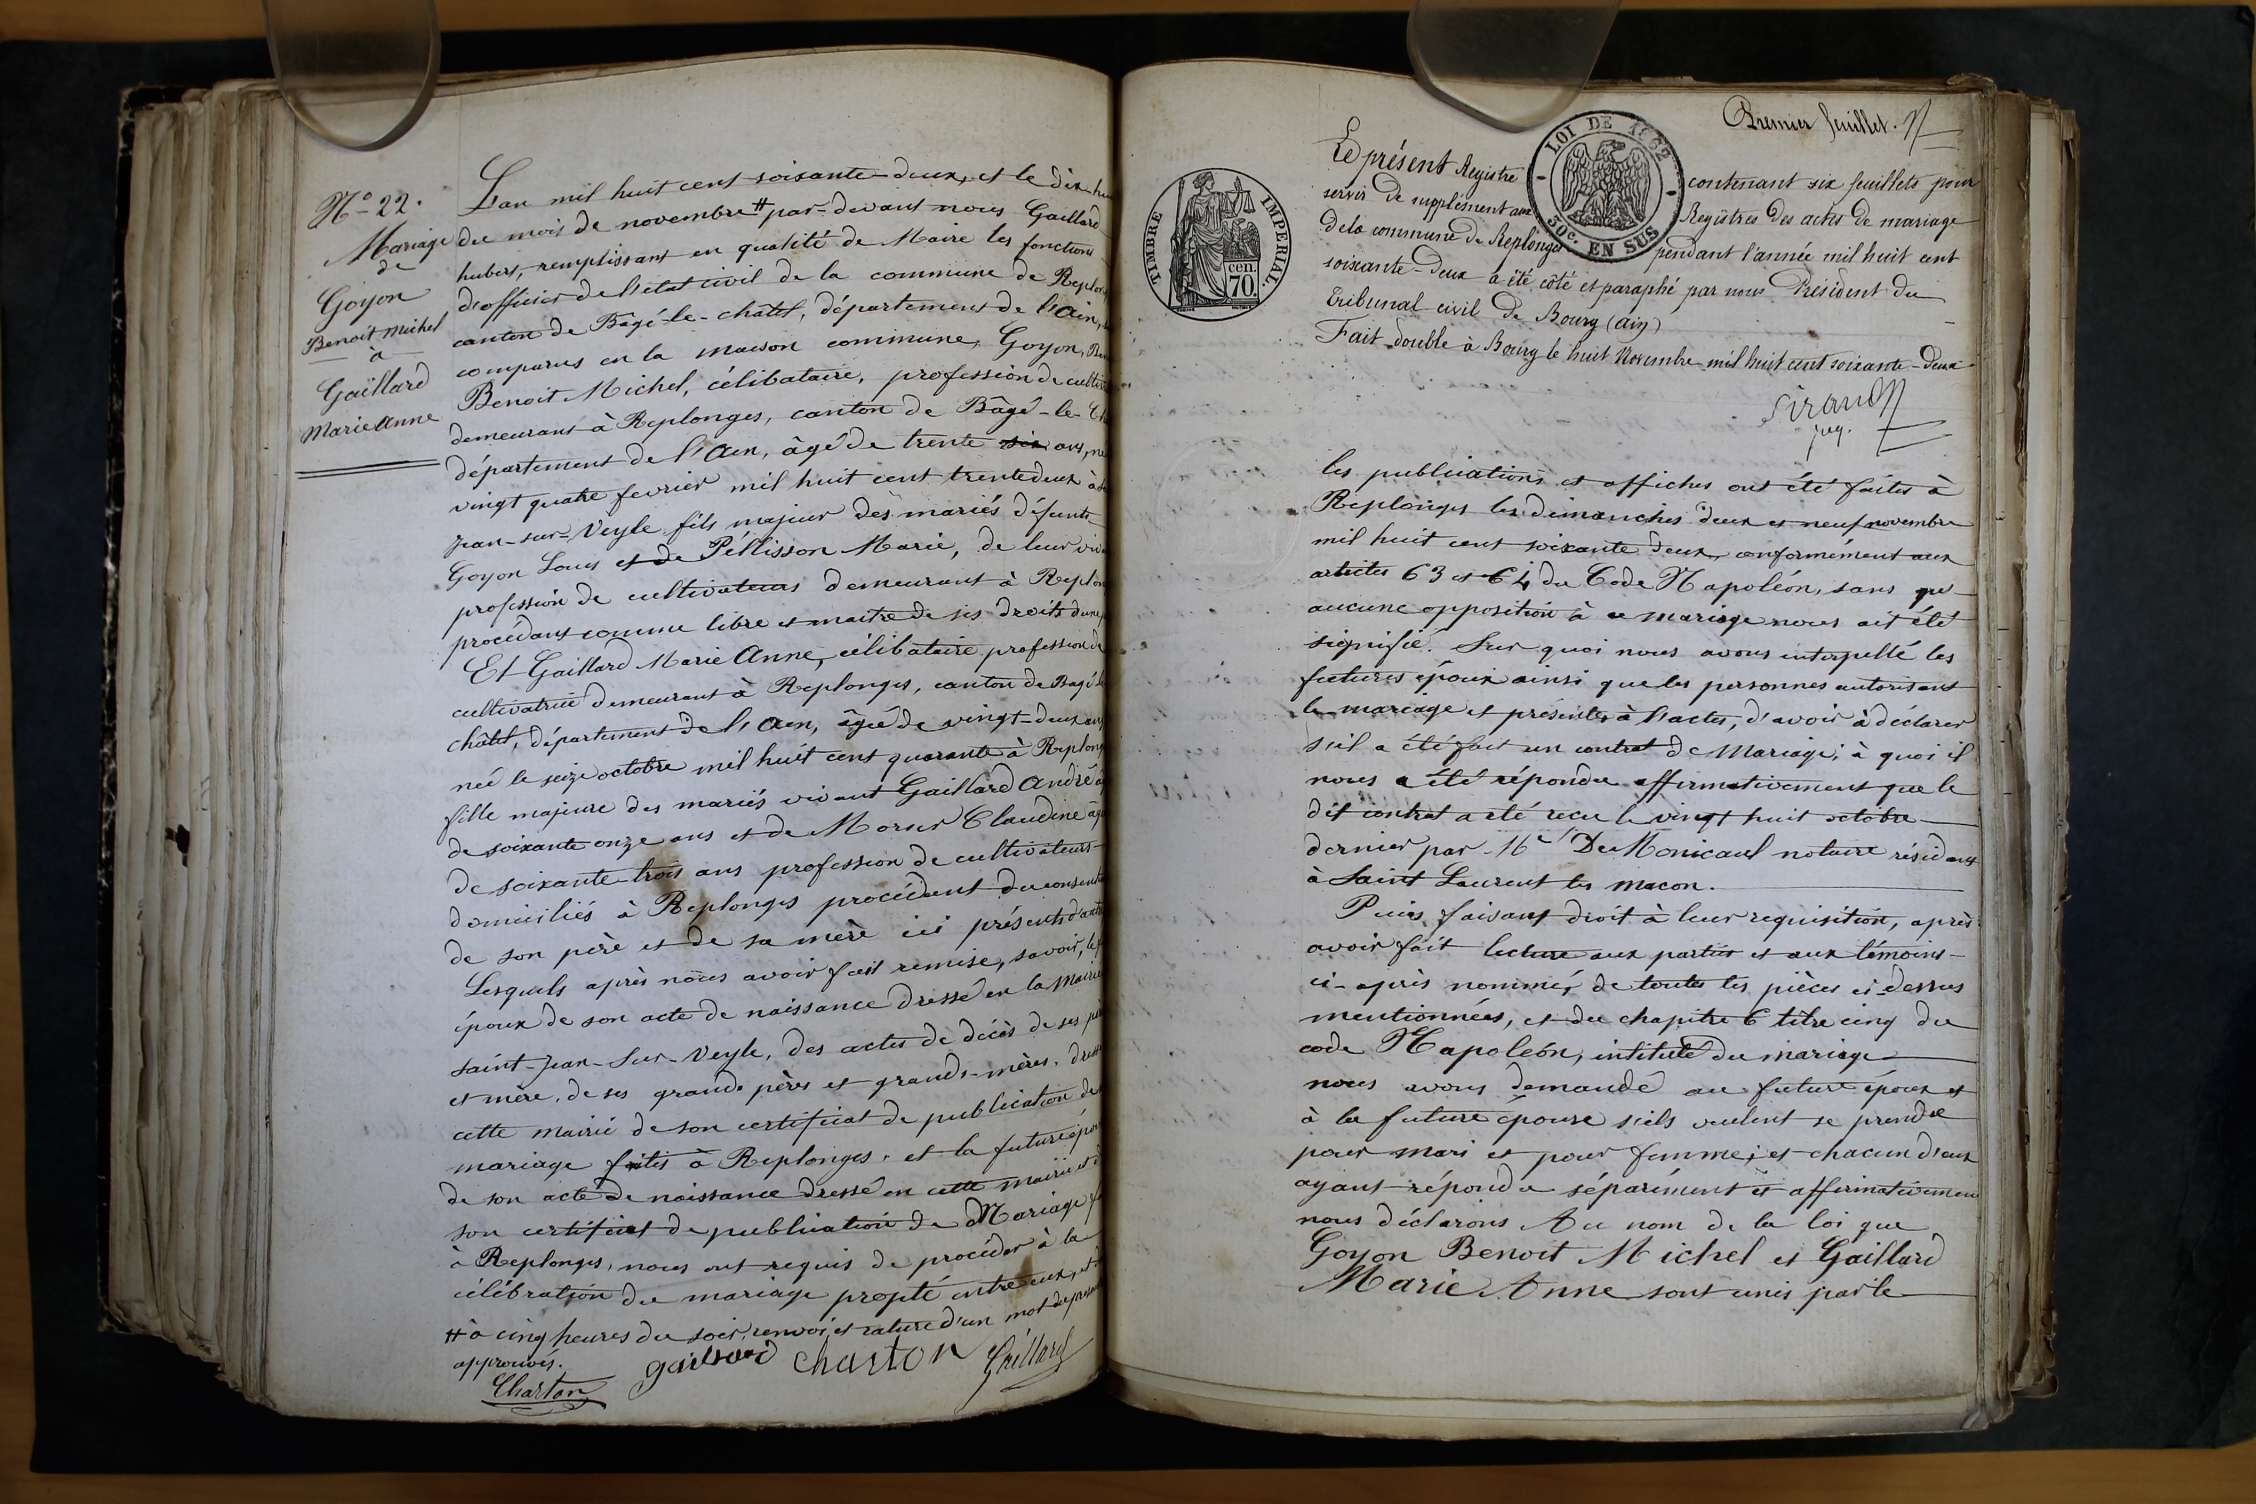 N° 22.
Mariage
de
Goyon
Benoit Michel
à
Gaillard
Marie Anne
L'an mil huit cent soixante-deux, et le dix-hu
du mois de novembre # par-devant nous Gaillard
hubert, remplissant en qualité de Maire les fonctions
d'officier de l'état civil de la commune de Replon
canton de Bagé-le-châtel, département de l'Ain,
comparus en la maison commune, Goyon,
Benoit Michel, célibataire, profession de cultiv
demeurant à Replonges, canton de Bâgé-le-Ch
département de l'Ain, âgé de trente six ans, né
vingt quatre fevrier mil huit cent trente deux à S
Jean-sur-Veyle fils majeur des mariés défunts
Goyon Louis et de Péllisson Marie, de leur viv
profession de cultivateurs demeurant à Replon
procédant comme libre et maître de ses droits d'une p
Et Gaillard Marie Anne, célibataire profession de
cultivatrice demeurant à Replonges, canton de Bagé le
châtel, département de l'Ain, âgée de vingt-deux ans
née le seize octobre mil huit cent quarante à Replong
fille majeure des mariés vivant Gaillard André â
de soixante onze ans et de Morier Claudine âg
de soixante-trois ans profession de cultivateurs
domiciliés à Replonges procédent du consent
de son père et de sa mère ici présents d'autre
Lesquels après nous avoir fait remise, savoir, le f
époux de son acte de naissance dressé en la Mairie
saint-Jean-Sur-Veyle, des actes de décès de ses pè
et mère, de ses grands pères et grands-mères, dress
cette mairie de son certificat de publication de
mariage faites à Replonges, et la future épou
de son acte de naissance dressé en cette mairie et d
son certificat de publication de Mariage f
à Replonges, nous ont requis de procéder à la
célébration du mariage projeté entre eux, et d
# à cinq heures du soir, renvoi et rature d'un mot
approuvés.
gaillard charton Gaillard
Charton
TIMBRE IMPERIAL
cen.
70
LOI DE 1862
30c. EN SUS
Premier feuillet.
Le présent Registre contenant six feuillets pour
servir de supplément aux Registres des actes de mariage
de la commune de Replonges pendant l'année mil huit cent
soixante-deux a été côté et paraphé par nous Président du
Tribunal civil de Bourg (ain)
Fait double à Bourg le huit Novembre mil huit cent soixante-deux
Sirand
les publications et affiches ont été faites à
Replonges les dimanches deux et neuf novembre
mil huit cent soixante deux, conformément aux
articles 63 et 64 du Code Napoléon, sans que
aucune opposition à ce mariage nous ait été
signifié. Sur quoi nous avons interpellé les
futures époux ainsi que les personnes autorisant
le mariage et présentes à l'actes, d'avoir à déclarer
s'il a été fait un contrat de Mariage; à quoi il
nous a été répondu affirmativement que le
dit contrat a été reçu le vingt huit octobre
dernier par Me De Monicaul notaire résidant
à Saint Laurent les macon.
Puis faisant droit à leur requisition, après
avoir fait lecture aux parties et aux témoins
ci-après nommés, de toutes les pièces ci-dessus
mentionnées, et du chapitre 6 titre cinq du
code Napoléon, intitulé du mariage
nous avons demandé au future époux et
à la future épouse s'ils veulent se prendre
pour mari et pour femme; et chacun d'eux
ayant répondu séparément et affirmativement
nous déclarons Au nom de la loi que
Goyon Benoit Michel et Gaillard
Marie Anne sont unis par le